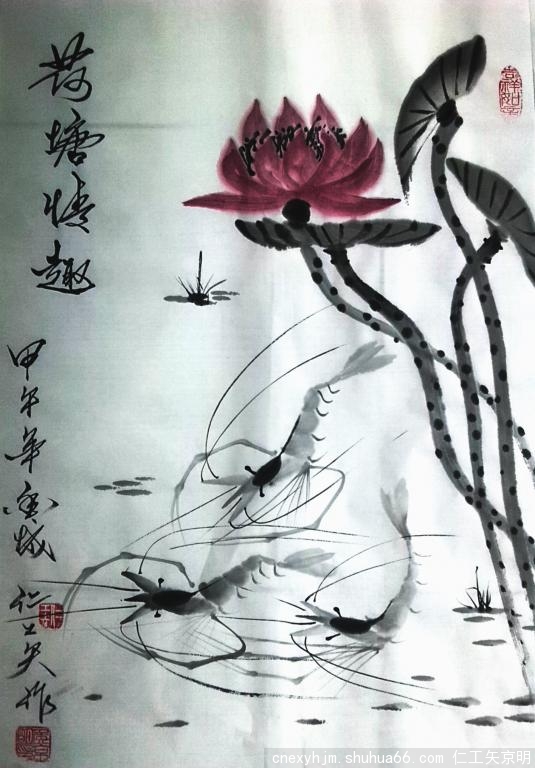 荷塘情趣
甲午年城
仁工矢作
吉祥如意
cnexyhjm.shuhua66.com 仁工矢京明